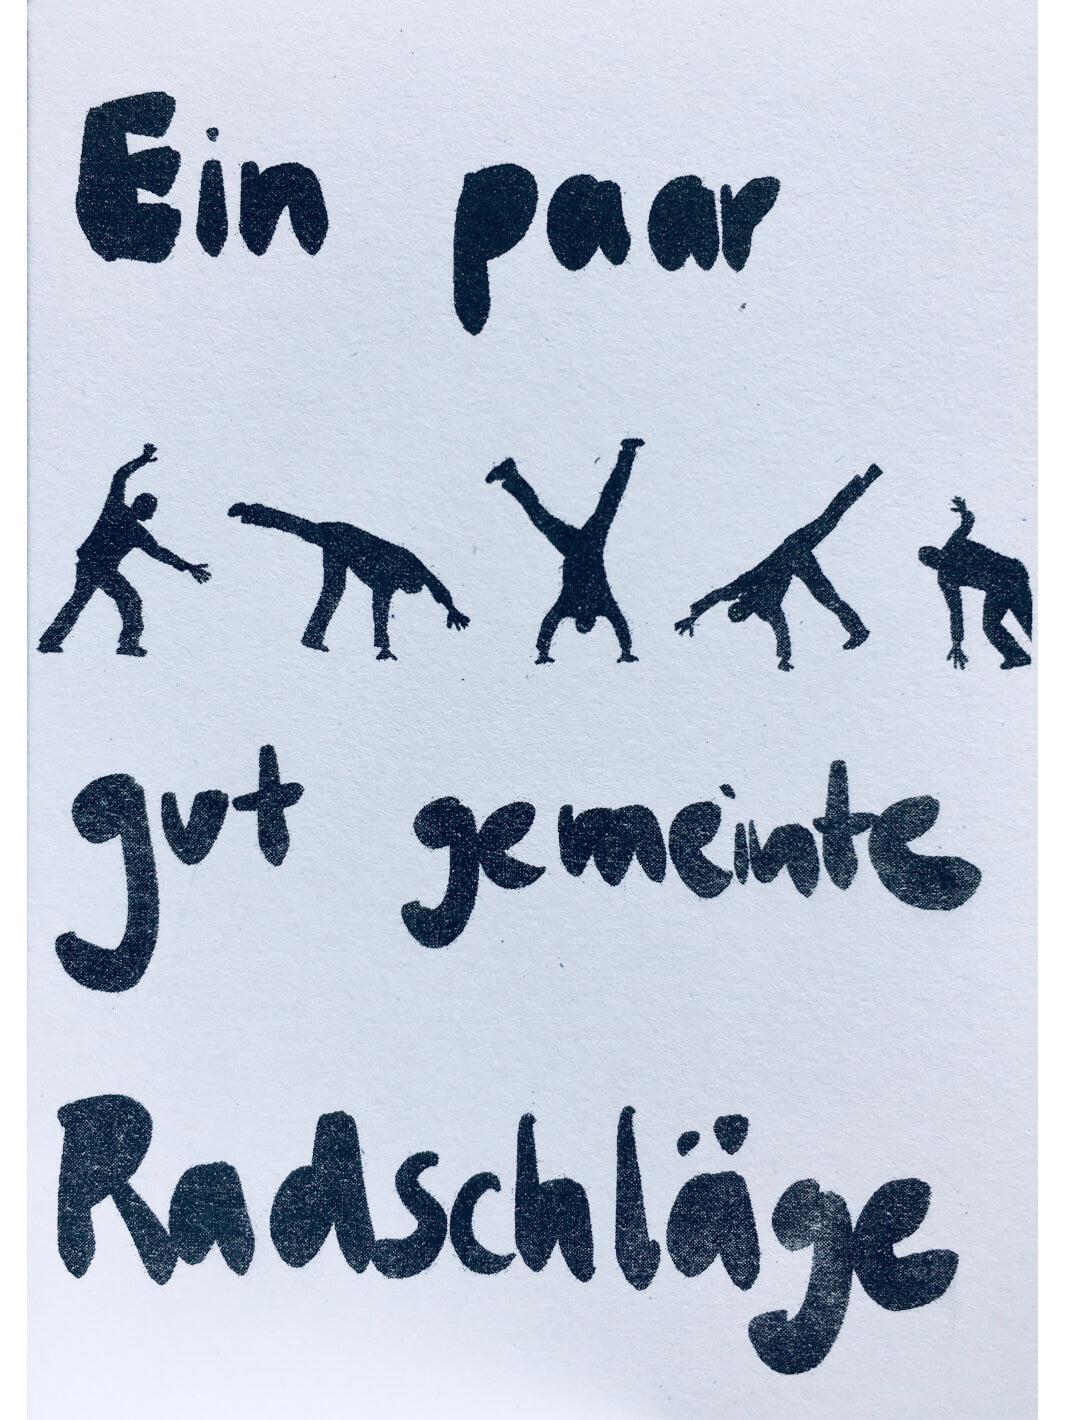 Ein paar
gut gemeinte
Radschläge